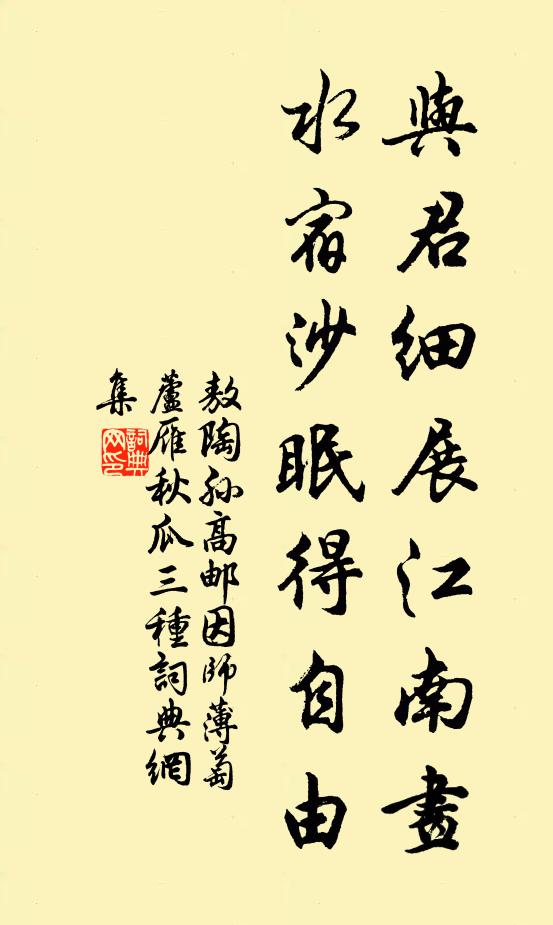 與君細展江南畫
水宿沙眠得自由
敖陶孫高郵因師薄萄
蘆雁秋瓜三種詞典網
集
詞典網印